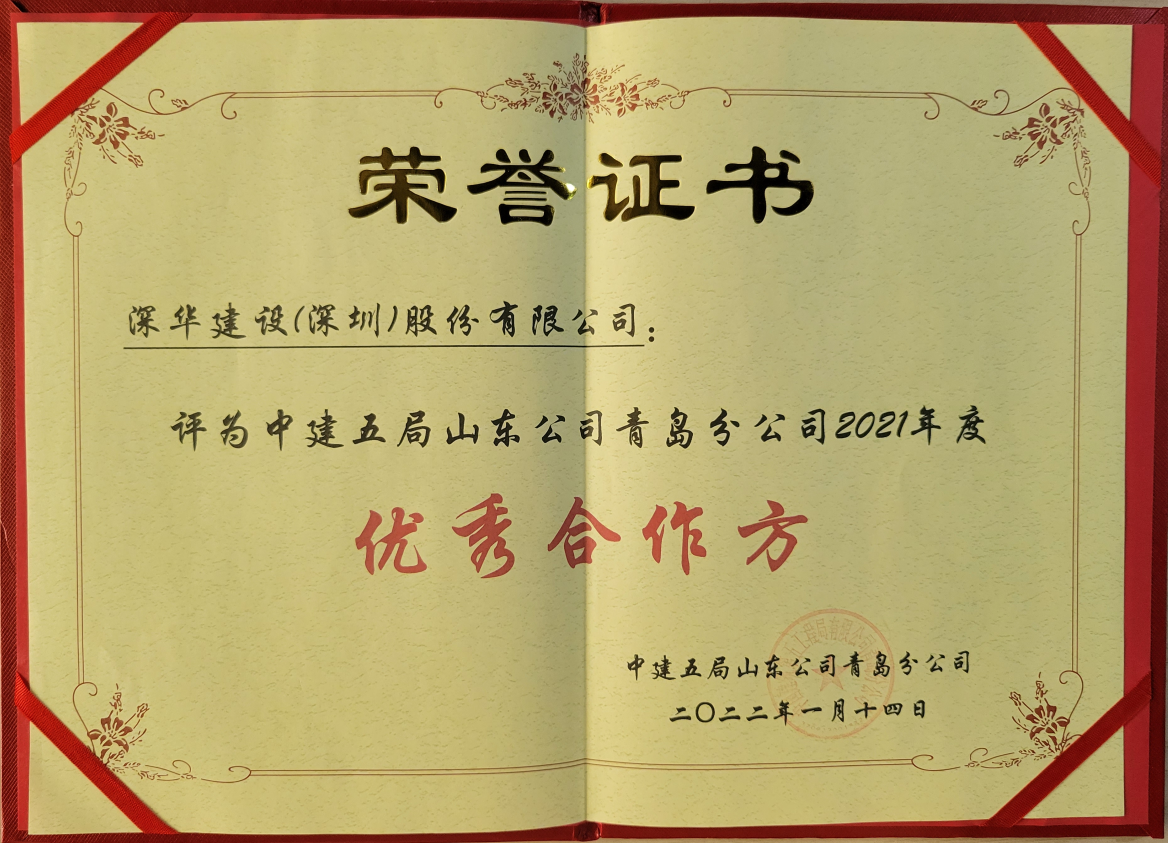 荣誉证书
深华建设(深圳)股份有限公司：
评为中建五局山东公司青岛分公司2021年度
优秀合作方
中建五局山东公司青岛分公司
二〇二二年一月十四日
工程局有限公司